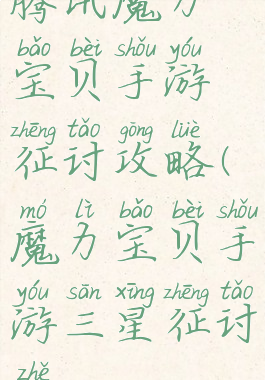 腾讯魔力
bǎo bèi shǒu yóu
宝贝手游
zhēng tǎo gōng lüè
征讨攻略(
mó lì bǎo bèi shǒu
魔力宝贝手
yóu sān xīng zhēng tǎo
游三星征讨
zhě